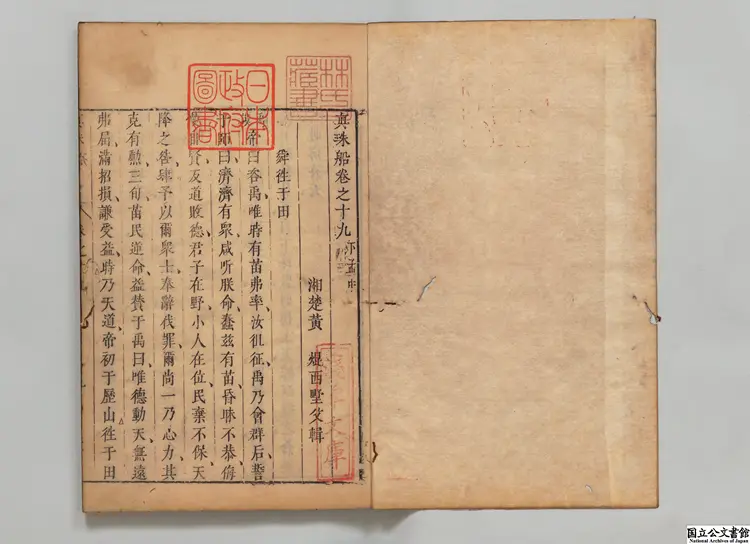 林氏藏書
日本政府圖書
真珠船卷之十九
湘楚黄 西墅父輯
舜往于田
帝曰咨禹唯時有苗弗率汝徂征禹乃會群后誓
于師曰濟濟有衆咸听朕命蠢茲有苗昏昧不恭侮
慢自賢反道敗德君子在野小人在位民棄不保天
降之咎肆予以爾衆士奉辭伐罪爾尚一乃心力其
克有勲三旬苗民逆命益贊于禹曰唯德動天無遠
弗届滿招損謙受益時乃天道帝初于歷山往于田
淺草文庫
国立公文書館
National Archives of Japan